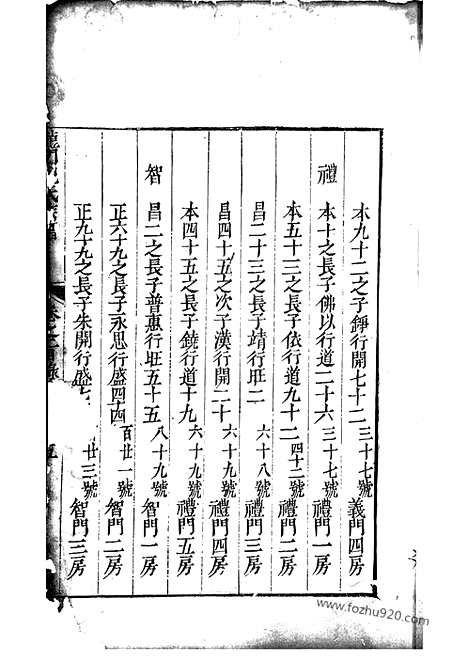 本九十二之子錚行開七十二 三十七號 義門四房
禮 本十之長子佛以行道二十六 三十七號 禮門一房
本五十三之長子依行道九十二 四十二號 禮門二房
昌二十三之長子靖行旺二 六十八號 禮門三房
昌四十五之次子漢行開二十 六十九號 禮門四房
本四十五之長子鐃行道十九 六十九號 禮門五房
智 昌二之長子普惠行旺五十五 八十九號 智門一房
正六十九之長子永思行盛四十四 百廿一號 智門二房
正九十九之長子朱開行盛七 廿三號 智門三房
五
www.fozhu920.com